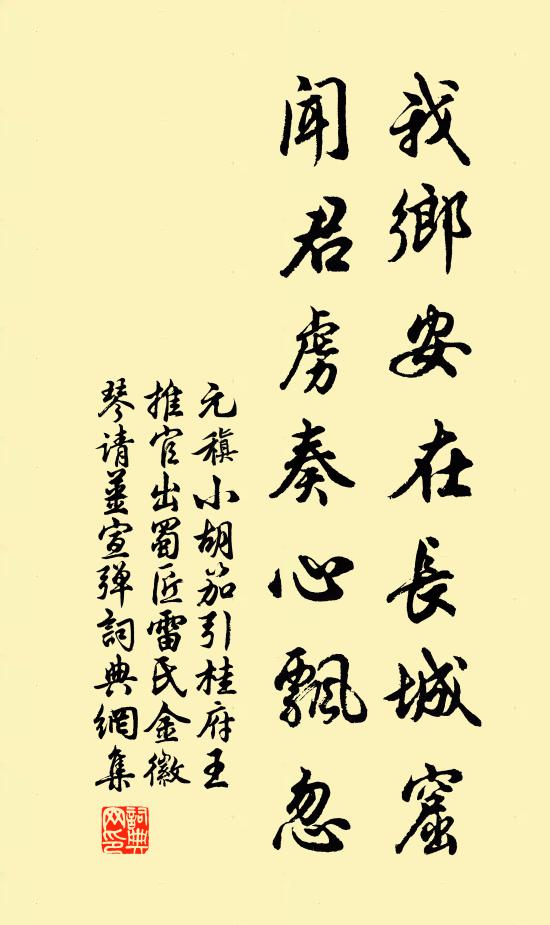 我鄉安在長城窟
聞君虜奏心飄忽
元稹小胡笳引桂府王
推官出蜀匠雷氏金徽
琴请姜宣弹詞典網集
詞典
网印